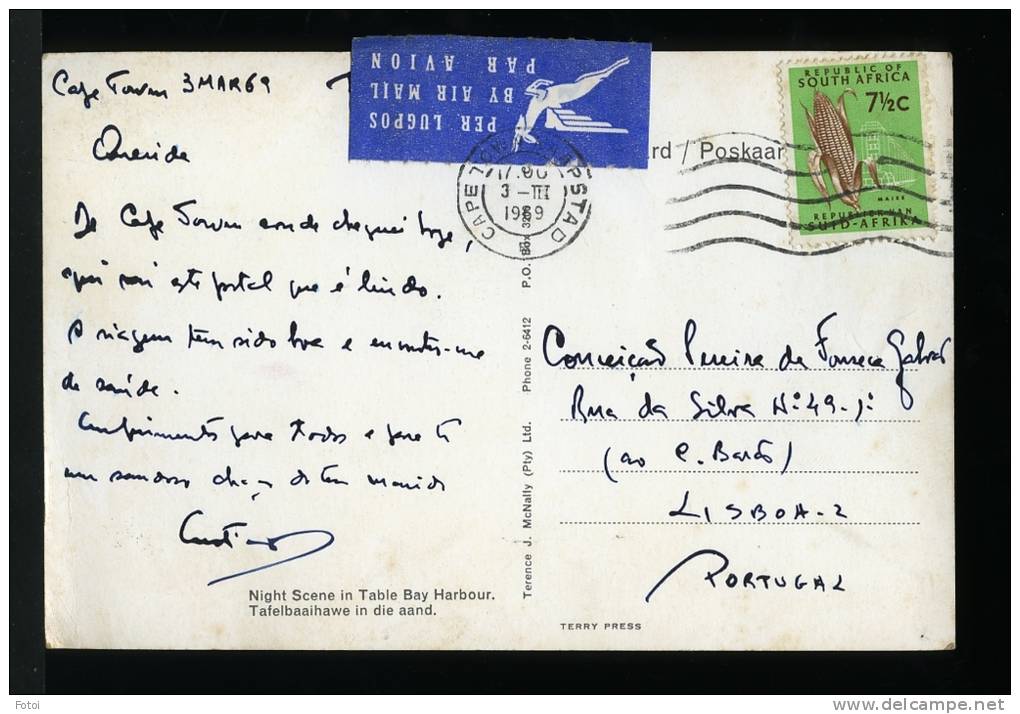 Cape Town 3 MAR 69
Querida
De Cape Town onde cheguei hoje,
aqui vai este postal que é lindo.
A viagem tem sido boa e encontro-me
de saúde.
Cumprimentos para todos e para ti
um saudoso do teu marido
Night Scene in Table Bay Harbour.
Tafelbaaihawe in die aand.
PER LUGPOS
BY AIR MAIL
PAR AVION
rd / Poskaar
CAPE KAAPSTAD
3-III
1969
REPUBLIC OF
SOUTH AFRICA
7½C
MAIZE
REPUBLIEK VAN
SUID-AFRIKA
Terence J. McNally (Pty) Ltd. Phone 2-6412 P.O. Box
Conceição Pereira da Fonseca
Rua da Silva Nº 49-1º
(ao C. Barão)
LISBOA-2
PORTUGAL
TERRY PRESS
Fotoi
delcampe.net